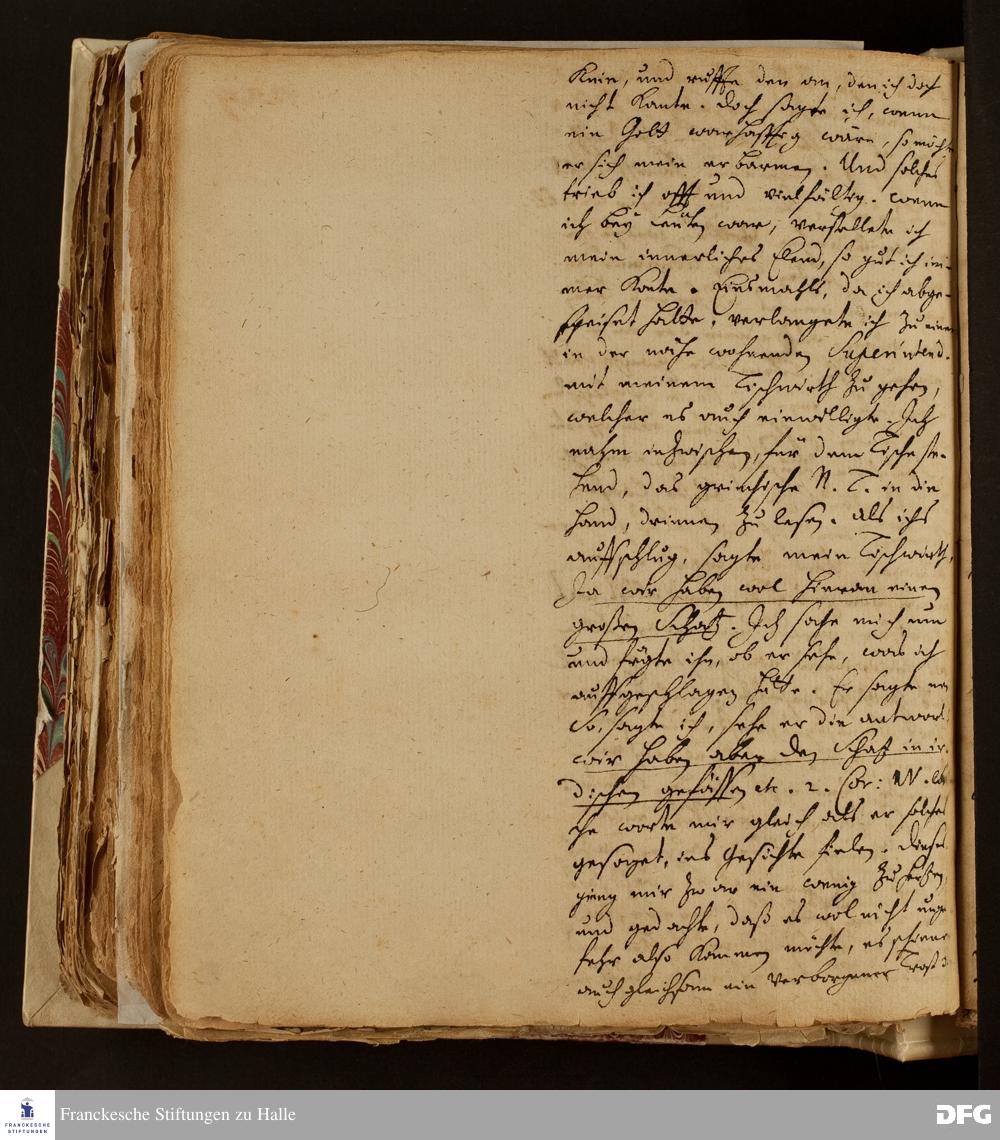 Knie, und ruffte den an, den ich doch
nicht kante. Doch sagte ich, wenn
ein Gott warhafftig wäre, so möchte
er sich mein erbarmen. Und solches
trieb ich offt und vielfältig. Wenn
ich bey Leuten war, verstellete ich
mein innerliches Elend, so gut ich im-
mer konte. Einsmahls, da ich abge-
speiset hatte, verlangete ich zu einem
in der nähe wohnenden Superintend.
mit meinem Tischwirth zu gehen,
welcher es auch einwilligte. Ich
nahm inzwischen, für dem Tische ste-
hend, das griechische N. T. in die
Hand, drinnen zu lesen. Als ichs
auffschlug, sagte mein Tischwirth,
Ja wir haben wol hieran einen
großen Schatz. Ich sahe mich um
und fragte ihn, ob er sehe, was ich
auffgeschlagen hätte. Er sagte nein
So, sagte ich, sehe er die antwort
wir haben aber den Schatz in ir-
dischen gefässen etc. 2. Cor: IV. wel-
che worte mir gleich als er solches
gesaget, ins Gesichte fielen. Dieses
gieng mir zwar ein wenig zu hertzen
und gedachte, daß es wol nicht unge-
fehr also kommen möchte, es schiene
auch gleichsam ein verborgener Trost
Franckesche Stiftungen zu Halle
FRANCKESCHE
STIFTUNGEN
DFG